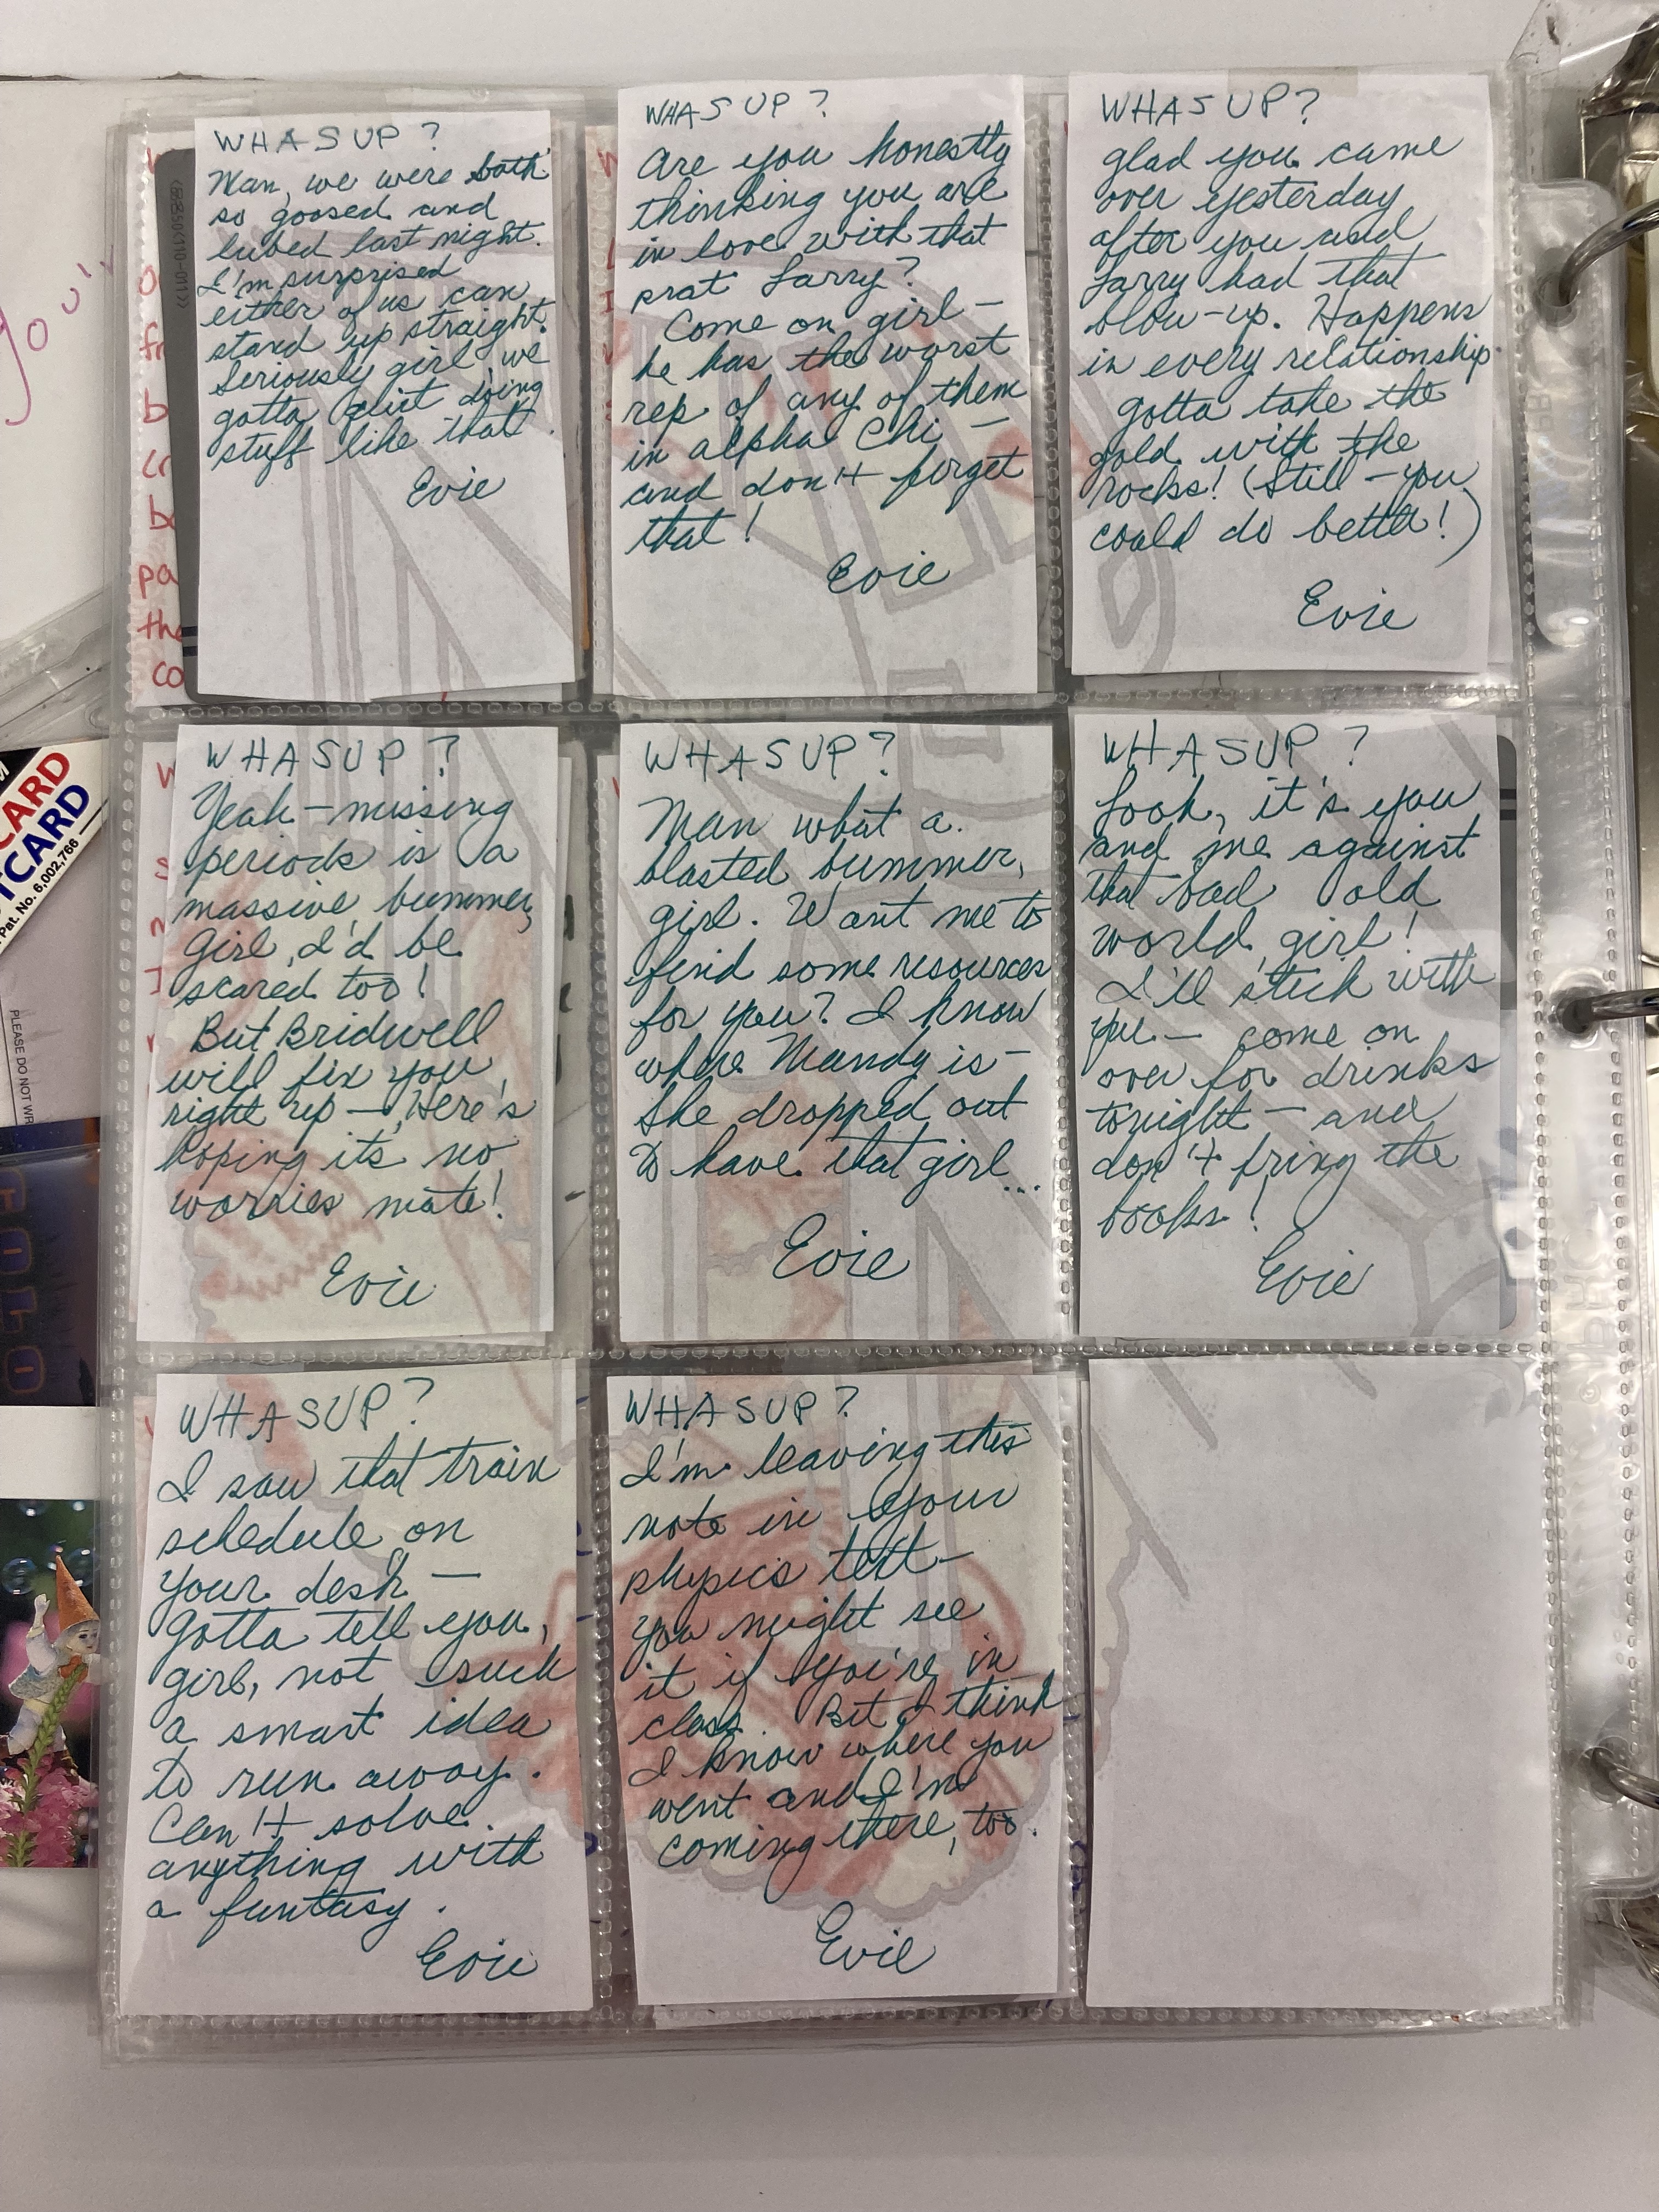 WHASUP?
Man, we were both
so goosed and
lubed last night.
I'm surprised
either of us can
stand up straight.
Seriously girl we
gotta quit doing
stuff like that.
Evie
WHASUP?
Are you honestly
thinking you are
in love with that
prat Larry?
Come on girl —
he has the worst
rep of any of them
in alpha Chi —
and don't forget
that!
Evie
WHASUP?
glad you came
over yesterday
after you and
Larry had that
blow-up. Happens
in every relationship.
gotta take the
gold with the
rocks! (Still — you
could do better!)
Evie
WHASUP?
Yeah — missing
periods is a
massive bummer,
girl, I'd be
scared too!
But Bridwell
will fix you
right up — Here's
hoping its no
worries mate!
Evie
WHASUP?
Man what a
blasted bummer,
girl. Want me to
find some resources
for you? I know
where Mandy is —
She dropped out
to have that girl...
Evie
WHASUP?
Look, it's you
and me against
that bad old
world, girl!
I'll stick with
you — come on
over for drinks
tonight — and
don't bring the
books!
Evie
WHASUP?
I saw that train
schedule on
your desk —
Gotta tell you,
girl, not such
a smart idea
to run away.
Can't solve
anything with
a fantasy.
Evie
WHASUP?
I'm leaving this
note in your
physics text —
you might see
it if you're in
class. But I think
I know where you
went and I'm
coming there, too.
Evie
you'
pa
the
co
CARD
TCARD
Pat. No. 6,002,766
PLEASE DO NOT WR